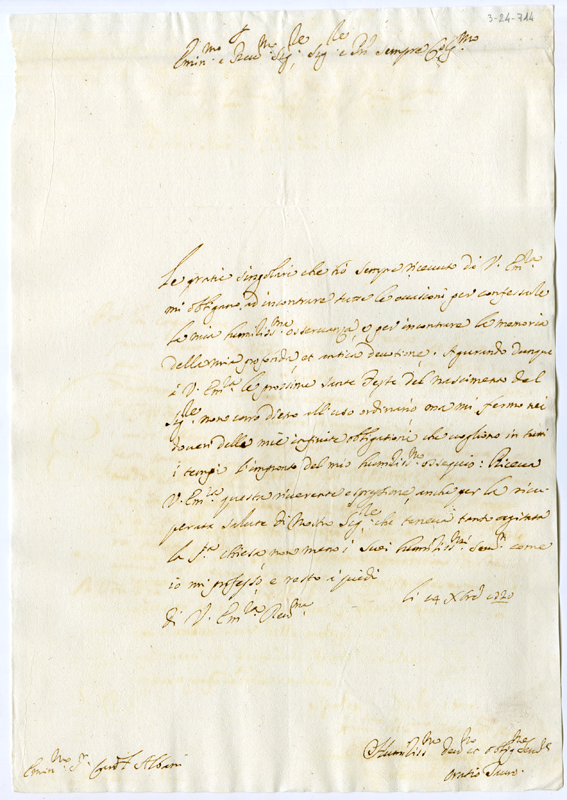 3-24-714
Emin.mo e Reu.mo Sig.re, Sig.re e P̃ron sempre Col.mo
Le gratie singolari che hò sempre riceuuto di V. Em.za
mi obligano ad incontrare tutte le occasioni per confessarle
la mia humilis.ma osseruanza, e per incontrare la memoria
della mia profonda, et antica deuotione. Agurando dunque
à V. Em.za le prossime Sante Feste del nascimento del
Sig.re non corro dietro all'uso ordinario ma mi fermo nei
doueri delle mie infinite obligationi che uogliono in tutti
i tempi l'impronto del mio humilis.mo ossequio: Riceua
V. Em.za questa riuerente espressione, anche per la ricu-
perata salute di Nostro Sig.re che teneua tanto agitata
la S.ta chiesa, non meno i suoi humilis.mi Seru.ri come
io mi professo, e resto a i piedi
di V. Em.za Reu.ma
li 14 Xbre 1720
Humilis.mo deu.mo et oblig.mo Seru.re
Oratio
Emin.mo S.r Card.l Albani